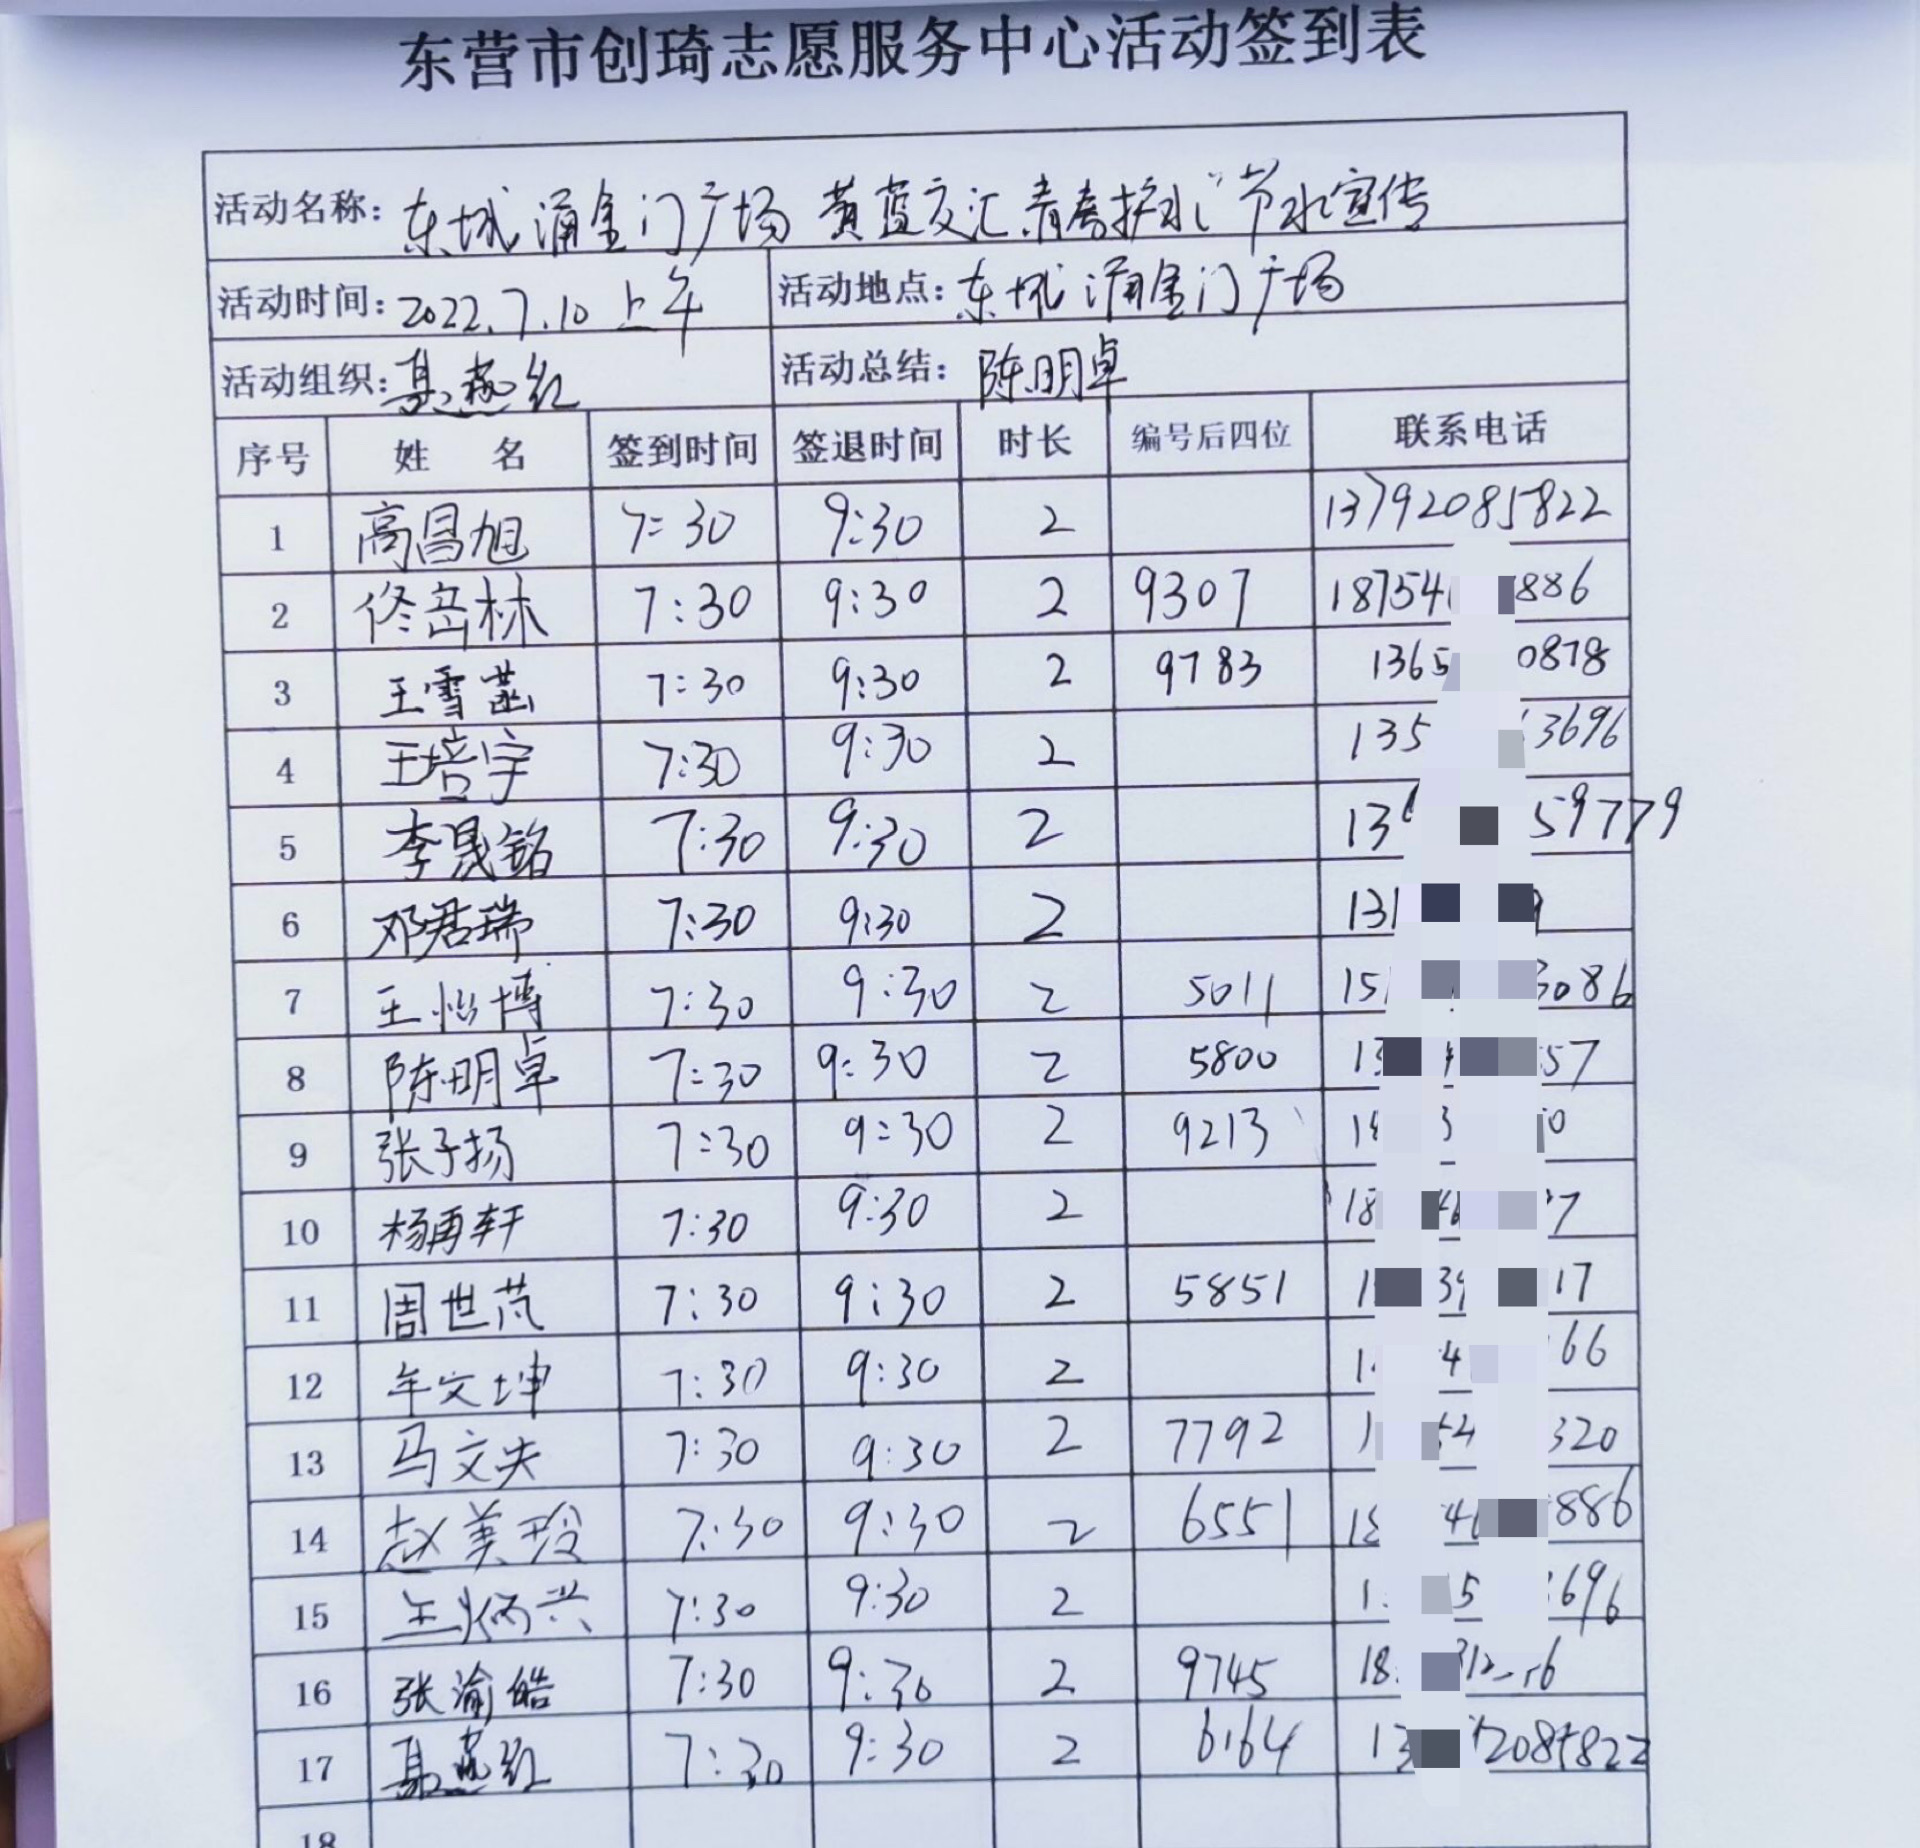 东营市创琦志愿服务中心活动签到表
活动名称: 东城涌金门广场 黄蓝交汇 青春护水" 节水宣传
活动时间: 2022.7.10 上午 活动地点: 东城涌金门广场
活动组织: 聂燕红 活动总结: 陈明卓
序号 姓 名 签到时间 签退时间 时长 编号后四位 联系电话
1 高昌旭 7:30 9:30 2 13792085822
2 佟岳林 7:30 9:30 2 9307 18754 886
3 王雪菡 7:30 9:30 2 9783 1365 0878
4 王培宇 7:30 9:30 2 135 3696
5 李晟铭 7:30 9:30 2 13 59779
6 邓君瑞 7:30 9:30 2 131
7 王怡博 7:30 9:30 2 5011 151 3086
8 陈明卓 7:30 9:30 2 5800 13 57
9 张子扬 7:30 9:30 2 9213 18 3 0
10 杨再轩 7:30 9:30 2 18 46 7
11 周世芃 7:30 9:30 2 5851 1 39 17
12 牟文坤 7:30 9:30 2 1 4 66
13 马文夫 7:30 9:30 2 7792 1 54 320
14 赵美玲 7:30 9:30 2 6551 18 4 886
15 王炳兴 7:30 9:30 2 1 5 696
16 张渝皓 7:30 9:30 2 9745 18 312 6
17 聂燕红 7:30 9:30 2 6164 13 2085822
18